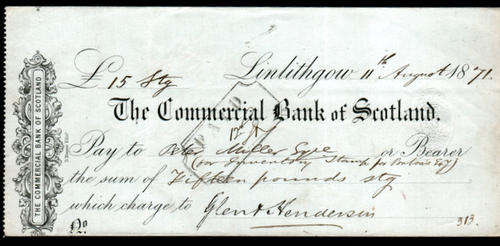 THE COMMERCIAL BANK OF SCOTLAND
£15 Stg Linlithgow 11th August 1871.
The Commercial Bank of Scotland.
PAID
Pay to Peter Miller Esqre or Bearer
(for Inventory Stamp
the sum of Fifteen pounds stg
which charge to Glen & Henderson
No. 313.